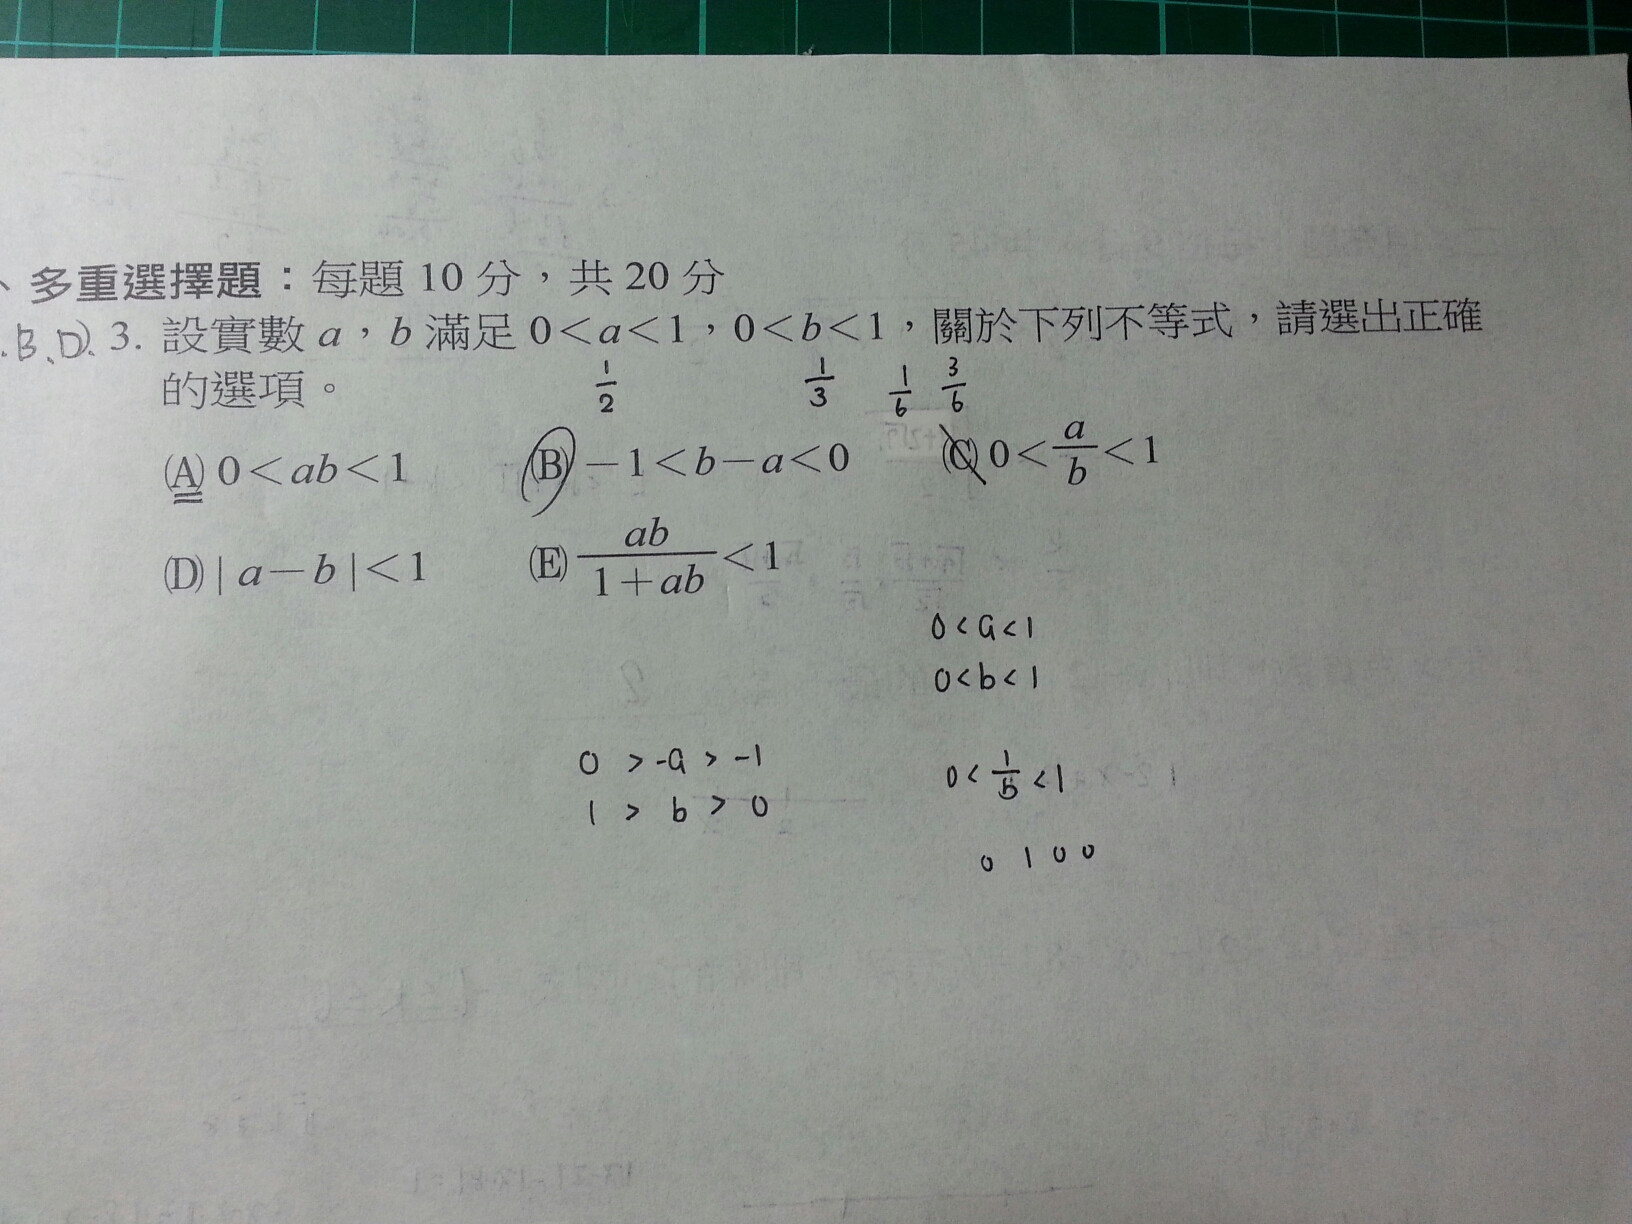 、多重選擇題：每題 10 分，共 20 分
.B、D). 3. 設實數 a，b 滿足 0<a<1，0<b<1，關於下列不等式，請選出正確
的選項。
1/2 1/3 1/6 3/6
(A) 0<ab<1 (B) −1<b−a<0 (C) 0<a/b<1
(D) | a−b |<1 (E) ab/(1+ab)<1
0<a<1
0<b<1
0 > -a > -1
1 > b > 0
0< 1/b <1
0 1 0 0